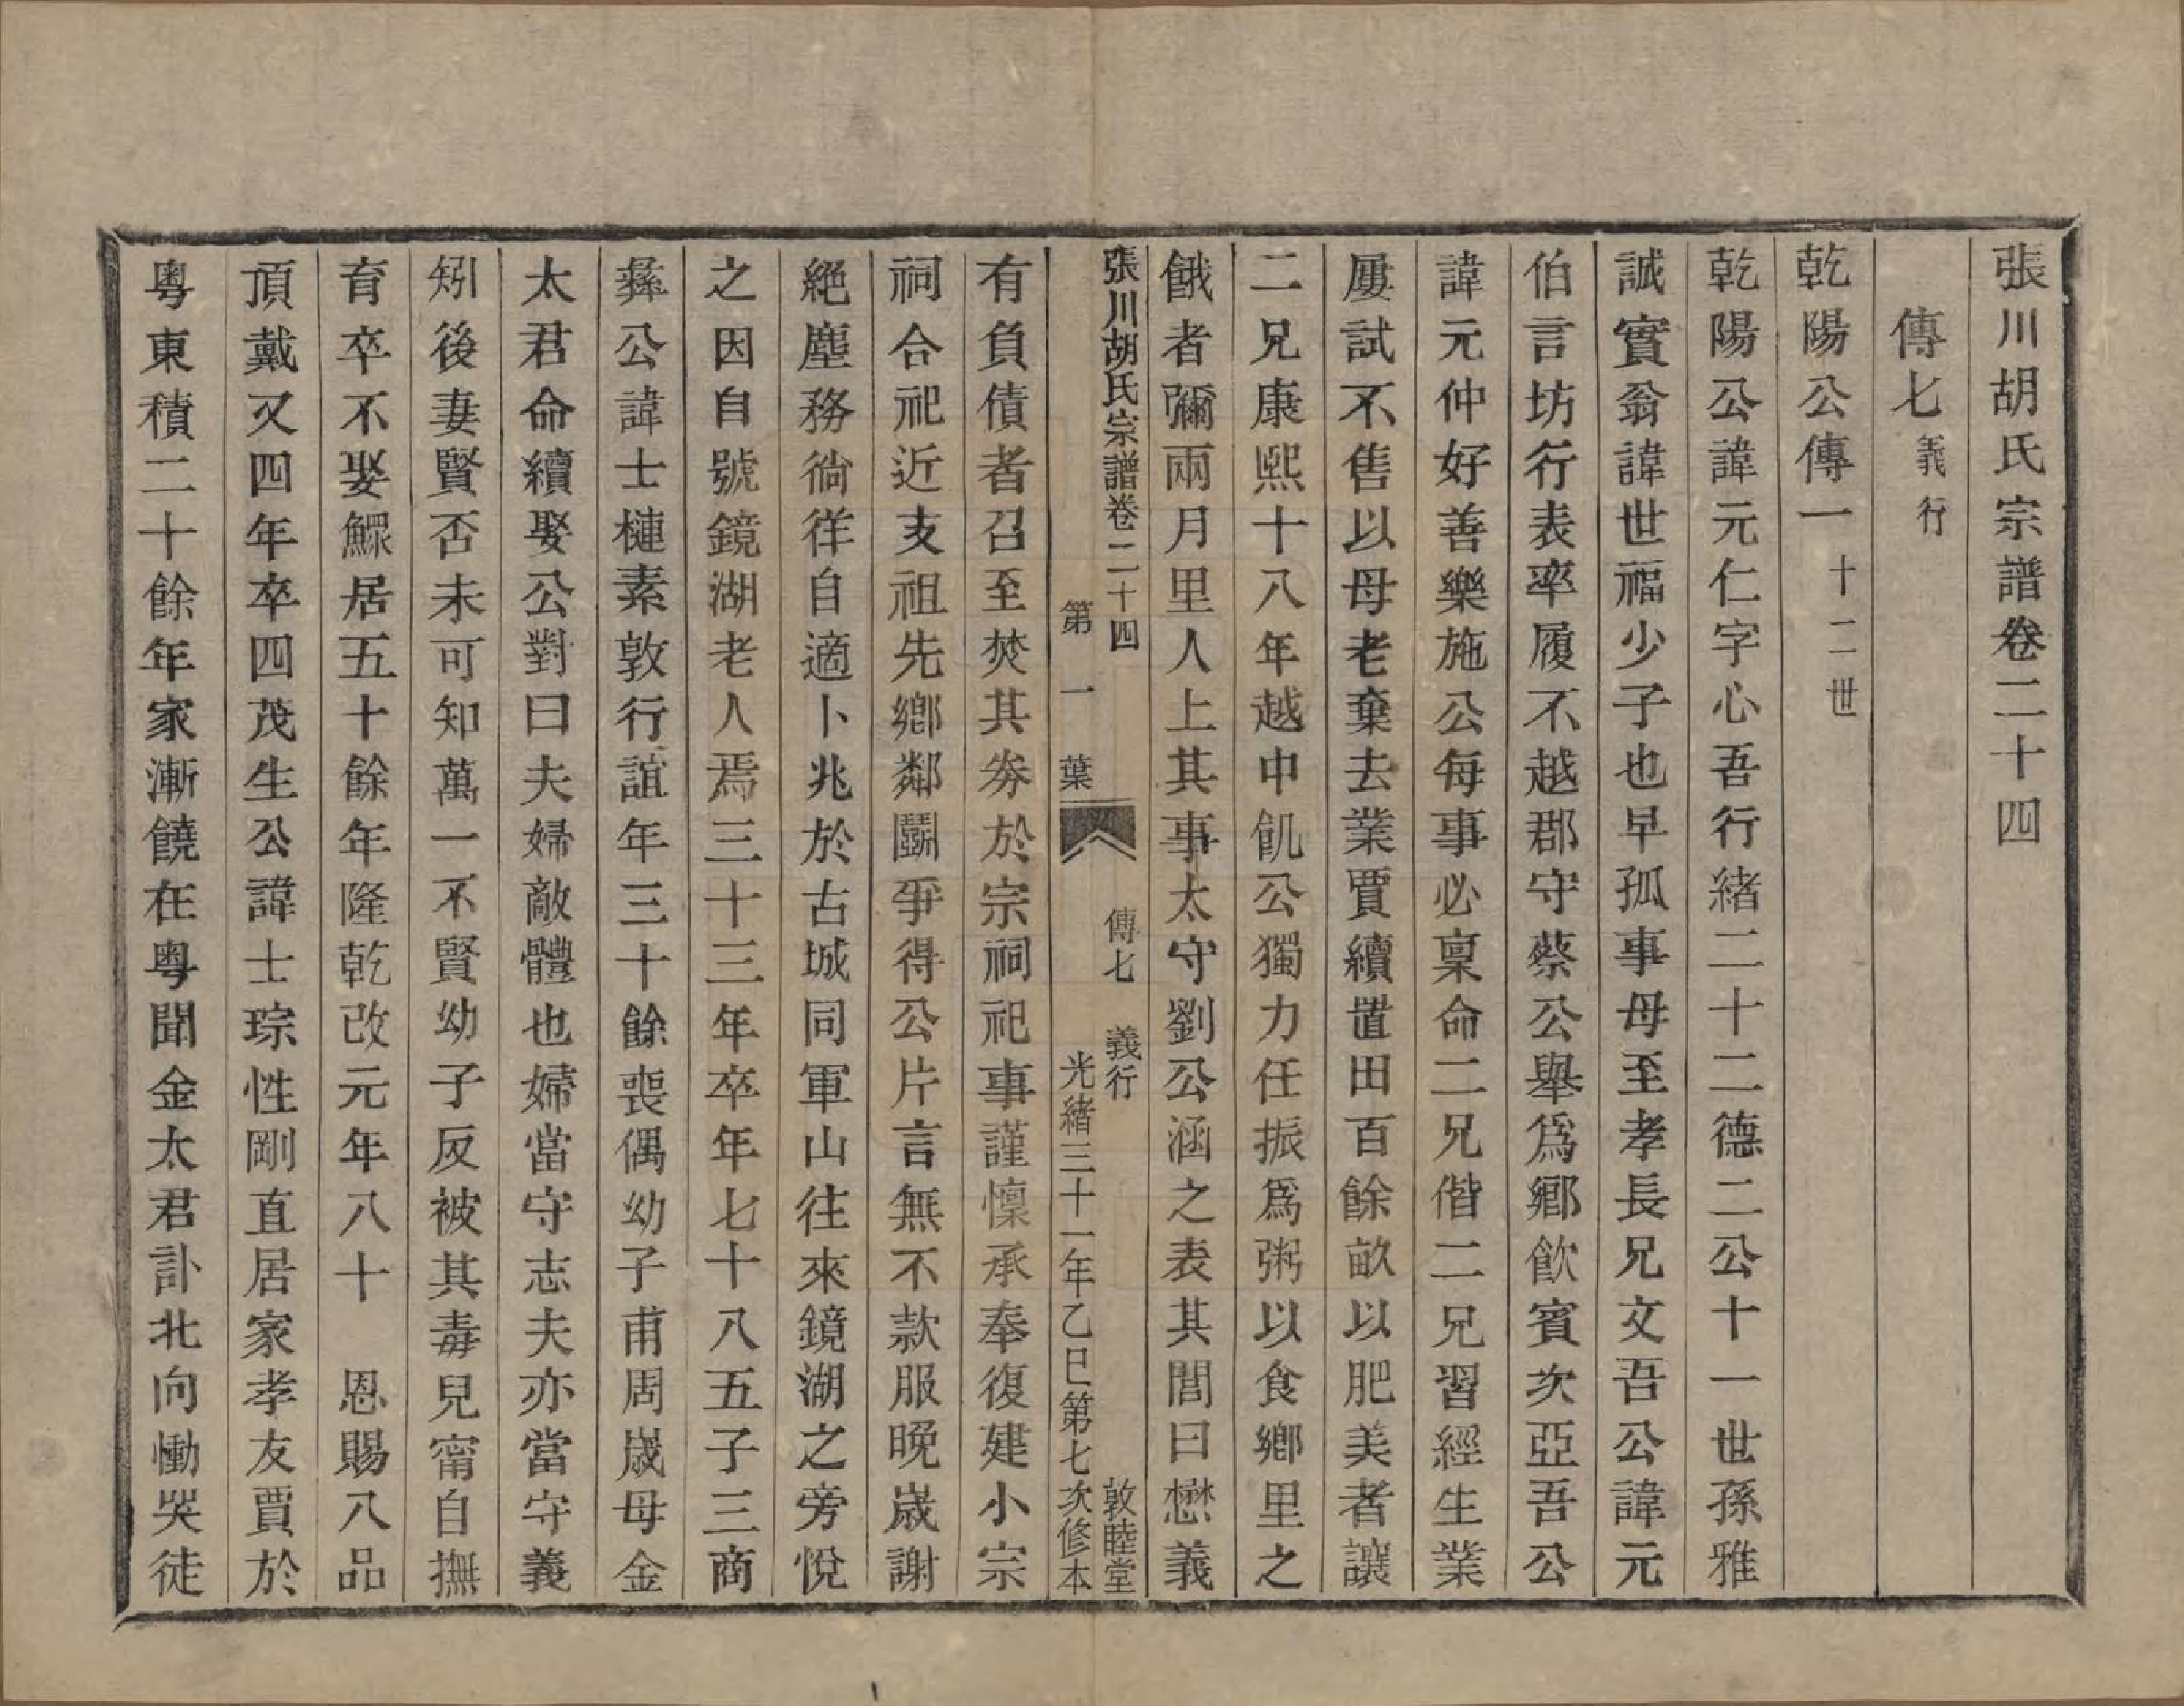 張川胡氏宗譜卷二十四
傳七義行
乾陽公傳一十二世
乾陽公諱元仁字心吾行緒二十二德二公十一世孫雅
誠實翁諱世福少子也早孤事母至孝長兄文吾公諱元
伯言坊行表率履不越郡守蔡公舉爲鄉飲賓次亞吾公
諱元仲好善樂施公每事必稟命二兄偕二兄習經生業
屢試不售以母老棄去業賈續置田百餘畝以肥美者讓
二兄康熙十八年越中飢公獨力任振爲粥以食鄉里之
餓者彌兩月里人上其事太守劉公涵之表其閭曰懋義
張川胡氏宗譜卷二十四 傳七 義行 敦睦堂
第一葉 光緒三十一年乙巳第七次修本
有負債者召至焚其券於宗祠祀事謹懍承奉復建小宗
祠合祀近支祖先鄉鄰鬭爭得公片言無不款服晚歲謝
絕塵務徜徉自適卜兆於古城同軍山往來鏡湖之旁悅
之因自號鏡湖老人焉三十三年卒年七十八五子三商
彝公諱士槤素敦行誼年三十餘喪偶幼子甫周歲母金
太君命續娶公對曰夫婦敵體也婦當守志夫亦當守義
矧後妻賢否未可知萬一不賢幼子反被其毒兒甯自撫
育卒不娶鰥居五十餘年隆乾改元年八十 恩賜八品
頂戴又四年卒四茂生公諱士琮性剛直居家孝友賈於
粤東積二十餘年家漸饒在粤聞金太君訃北向慟哭徒